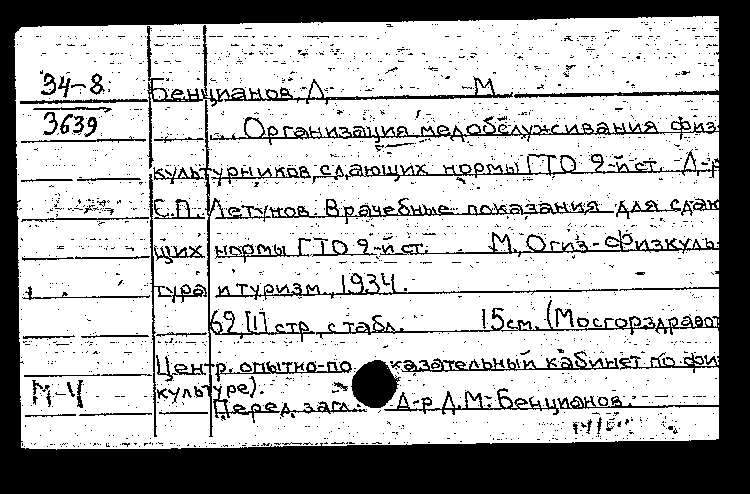 34-8. Бенцианов, Д. М.
3639 ... Организация медобслуживания физ-
культурников, сдающих нормы ГТО 2-й ст. Д-р
С.П. Летунов. Врачебные показания для сдаю
щих нормы ГТО 2-й ст. М., Огиз-Физкуль-
тура и туризм, 1934.
62,[1] стр. с табл. 15см. (Мосгорздравот
Центр. опытно-по казательный кабинет по физ
М-Ч культуре).
Перед загл.: Д-р Д.М. Бенцианов.